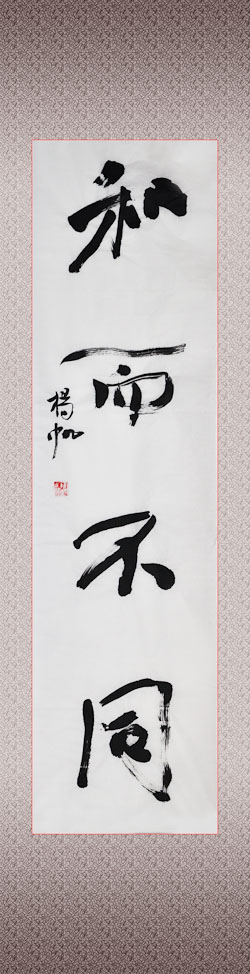 和而不同
楊帆